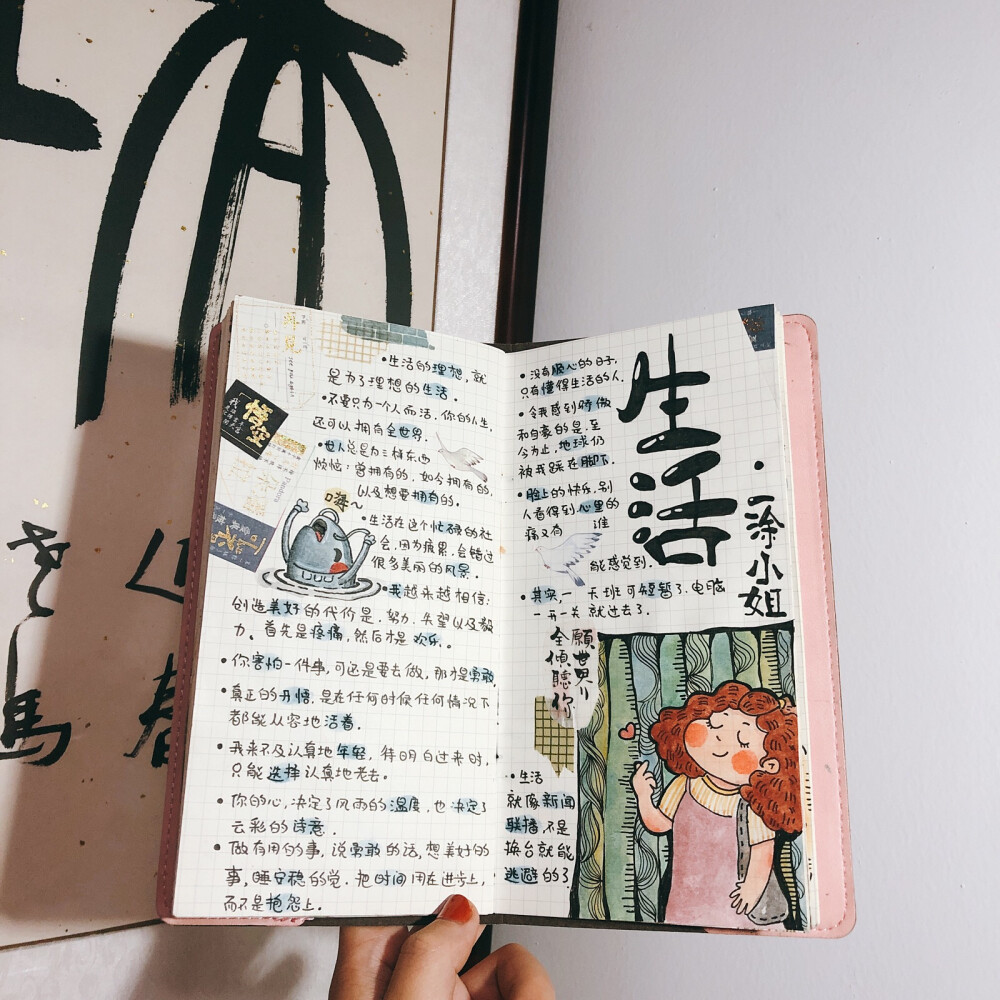 •生活的理想，就
是为了理想的生活．
•不要只为一个人而活．你的人生，
还可以拥有全世界．
•世人总是为三样东西
烦恼：曾拥有的，如今拥有的，
以及想要拥有的．
嗨～
•生活在这个忙碌的社
会，因为疲累，会错过
很多美丽的风景．
•我越来越相信：
创造美好的代价是．努力．失望以及毅
力．首先是疼痛，然后才是欢乐．
•你害怕一件事，可还是要去做，那才是勇敢
•真正的开悟，是在任何时候任何情况下
都能从容地活着．
•我来不及认真地年轻，待明白过来时，
只能选择认真地老去．
•你的心，决定了风雨的温度，也决定了
云彩的诗意．
•做有用的事，说勇敢的话，想美好的
事，睡安稳的觉．把时间用在进步上，
而不是抱怨上．
悟空
•没有顺心的日子，
只有懂得生活的人．
•令我感到骄傲
和自豪的是，至
今为止，地球仍
被我踩在脚下．
•脸上的快乐，别
人看得到．心里的
痛又有 谁
能感觉到．
•其实，一天班可短暂了．电脑
一开一关 就过去了．
生活
•一涂小姐
願世界
全傾聽你
•生活
就像新闻
联播，不是
换台就能
逃避的了
春
馬